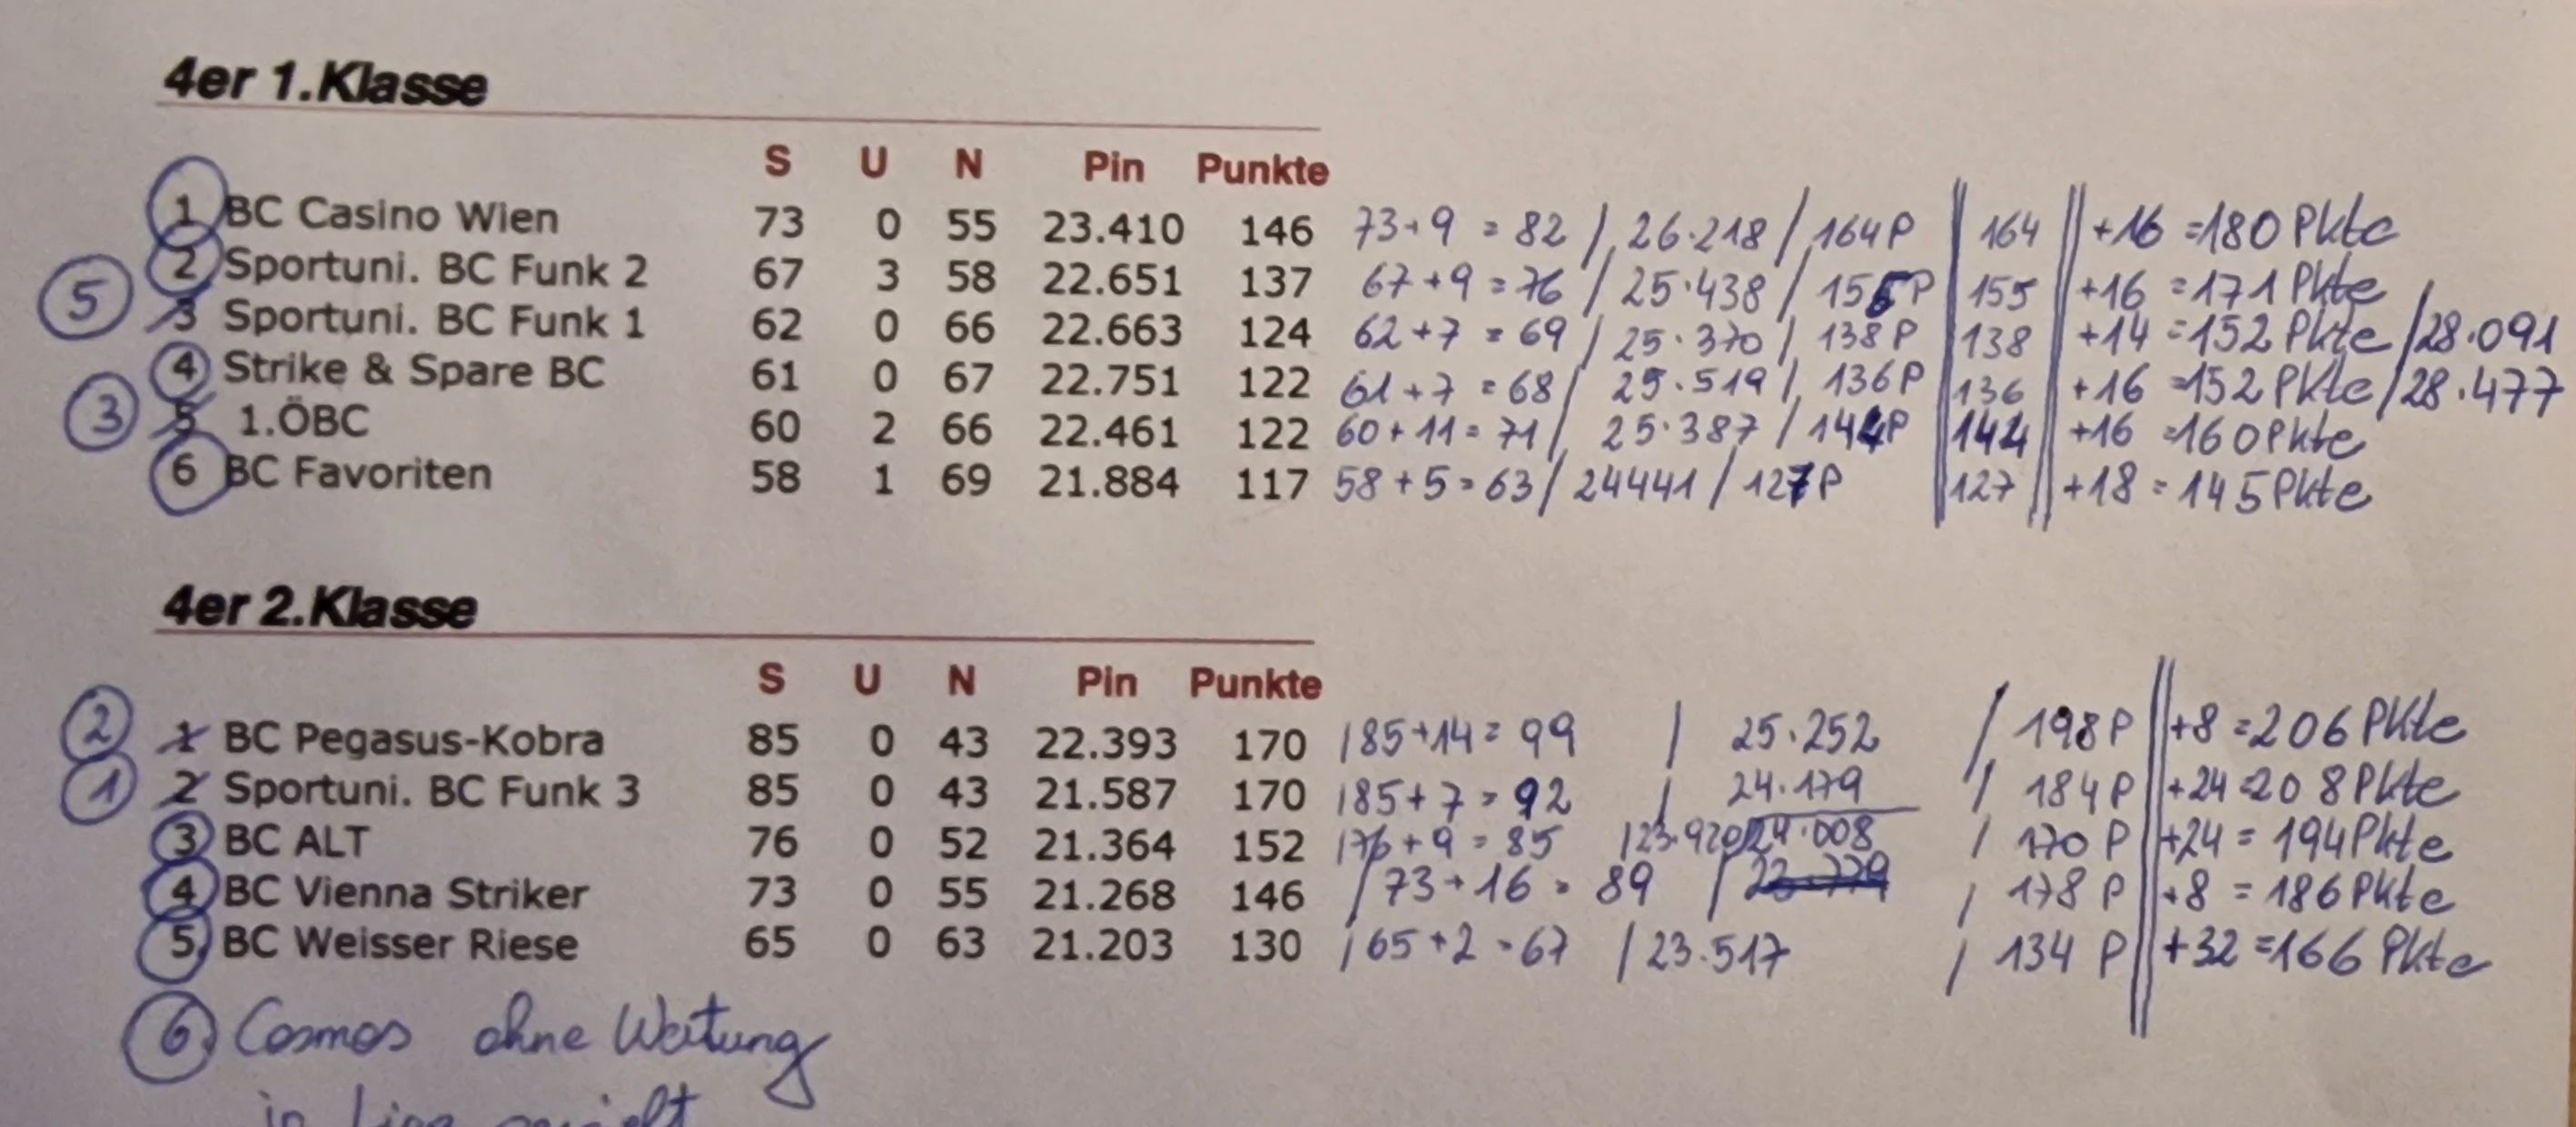 4er 1.Klasse
S U N Pin Punkte
1 BC Casino Wien 73 0 55 23.410 146 73+9 = 82 / 26.218 / 164P || 164 || +16 =180 Pkte
2 Sportuni. BC Funk 2 67 3 58 22.651 137 67+9 = 76 / 25.438 / 155P || 155 || +16 =171 Pkte
5 3 Sportuni. BC Funk 1 62 0 66 22.663 124 62+7 = 69 / 25.370 / 138P || 138 || +14 =152 Pkte / 28.091
4 Strike & Spare BC 61 0 67 22.751 122 61+7 = 68 / 25.519 / 136P || 136 || +16 =152 Pkte / 28.477
3 5 1.ÖBC 60 2 66 22.461 122 60+11 = 71 / 25.387 / 144P || 144 || +16 =160 Pkte
6 BC Favoriten 58 1 69 21.884 117 58+5 = 63 / 24441 / 127P || 127 || +18 = 145 Pkte
4er 2.Klasse
S U N Pin Punkte
2 1 BC Pegasus-Kobra 85 0 43 22.393 170 / 85+14 = 99 / 25.252 / 198P || +8 =206 Pkte
1 2 Sportuni. BC Funk 3 85 0 43 21.587 170 / 85+7 = 92 / 24.179 / 184P || +24 =208 Pkte
3 BC ALT 76 0 52 21.364 152 / 76+9 = 85 / 23.920 / 24.008 / 170P || +24 = 194 Pkte
4 BC Vienna Striker 73 0 55 21.268 146 / 73+16 = 89 / / 178P || +8 = 186 Pkte
5 BC Weisser Riese 65 0 63 21.203 130 / 65+2 = 67 / 23.517 / 134P || +32 =166 Pkte
6 Cosmos ohne Wertung
in